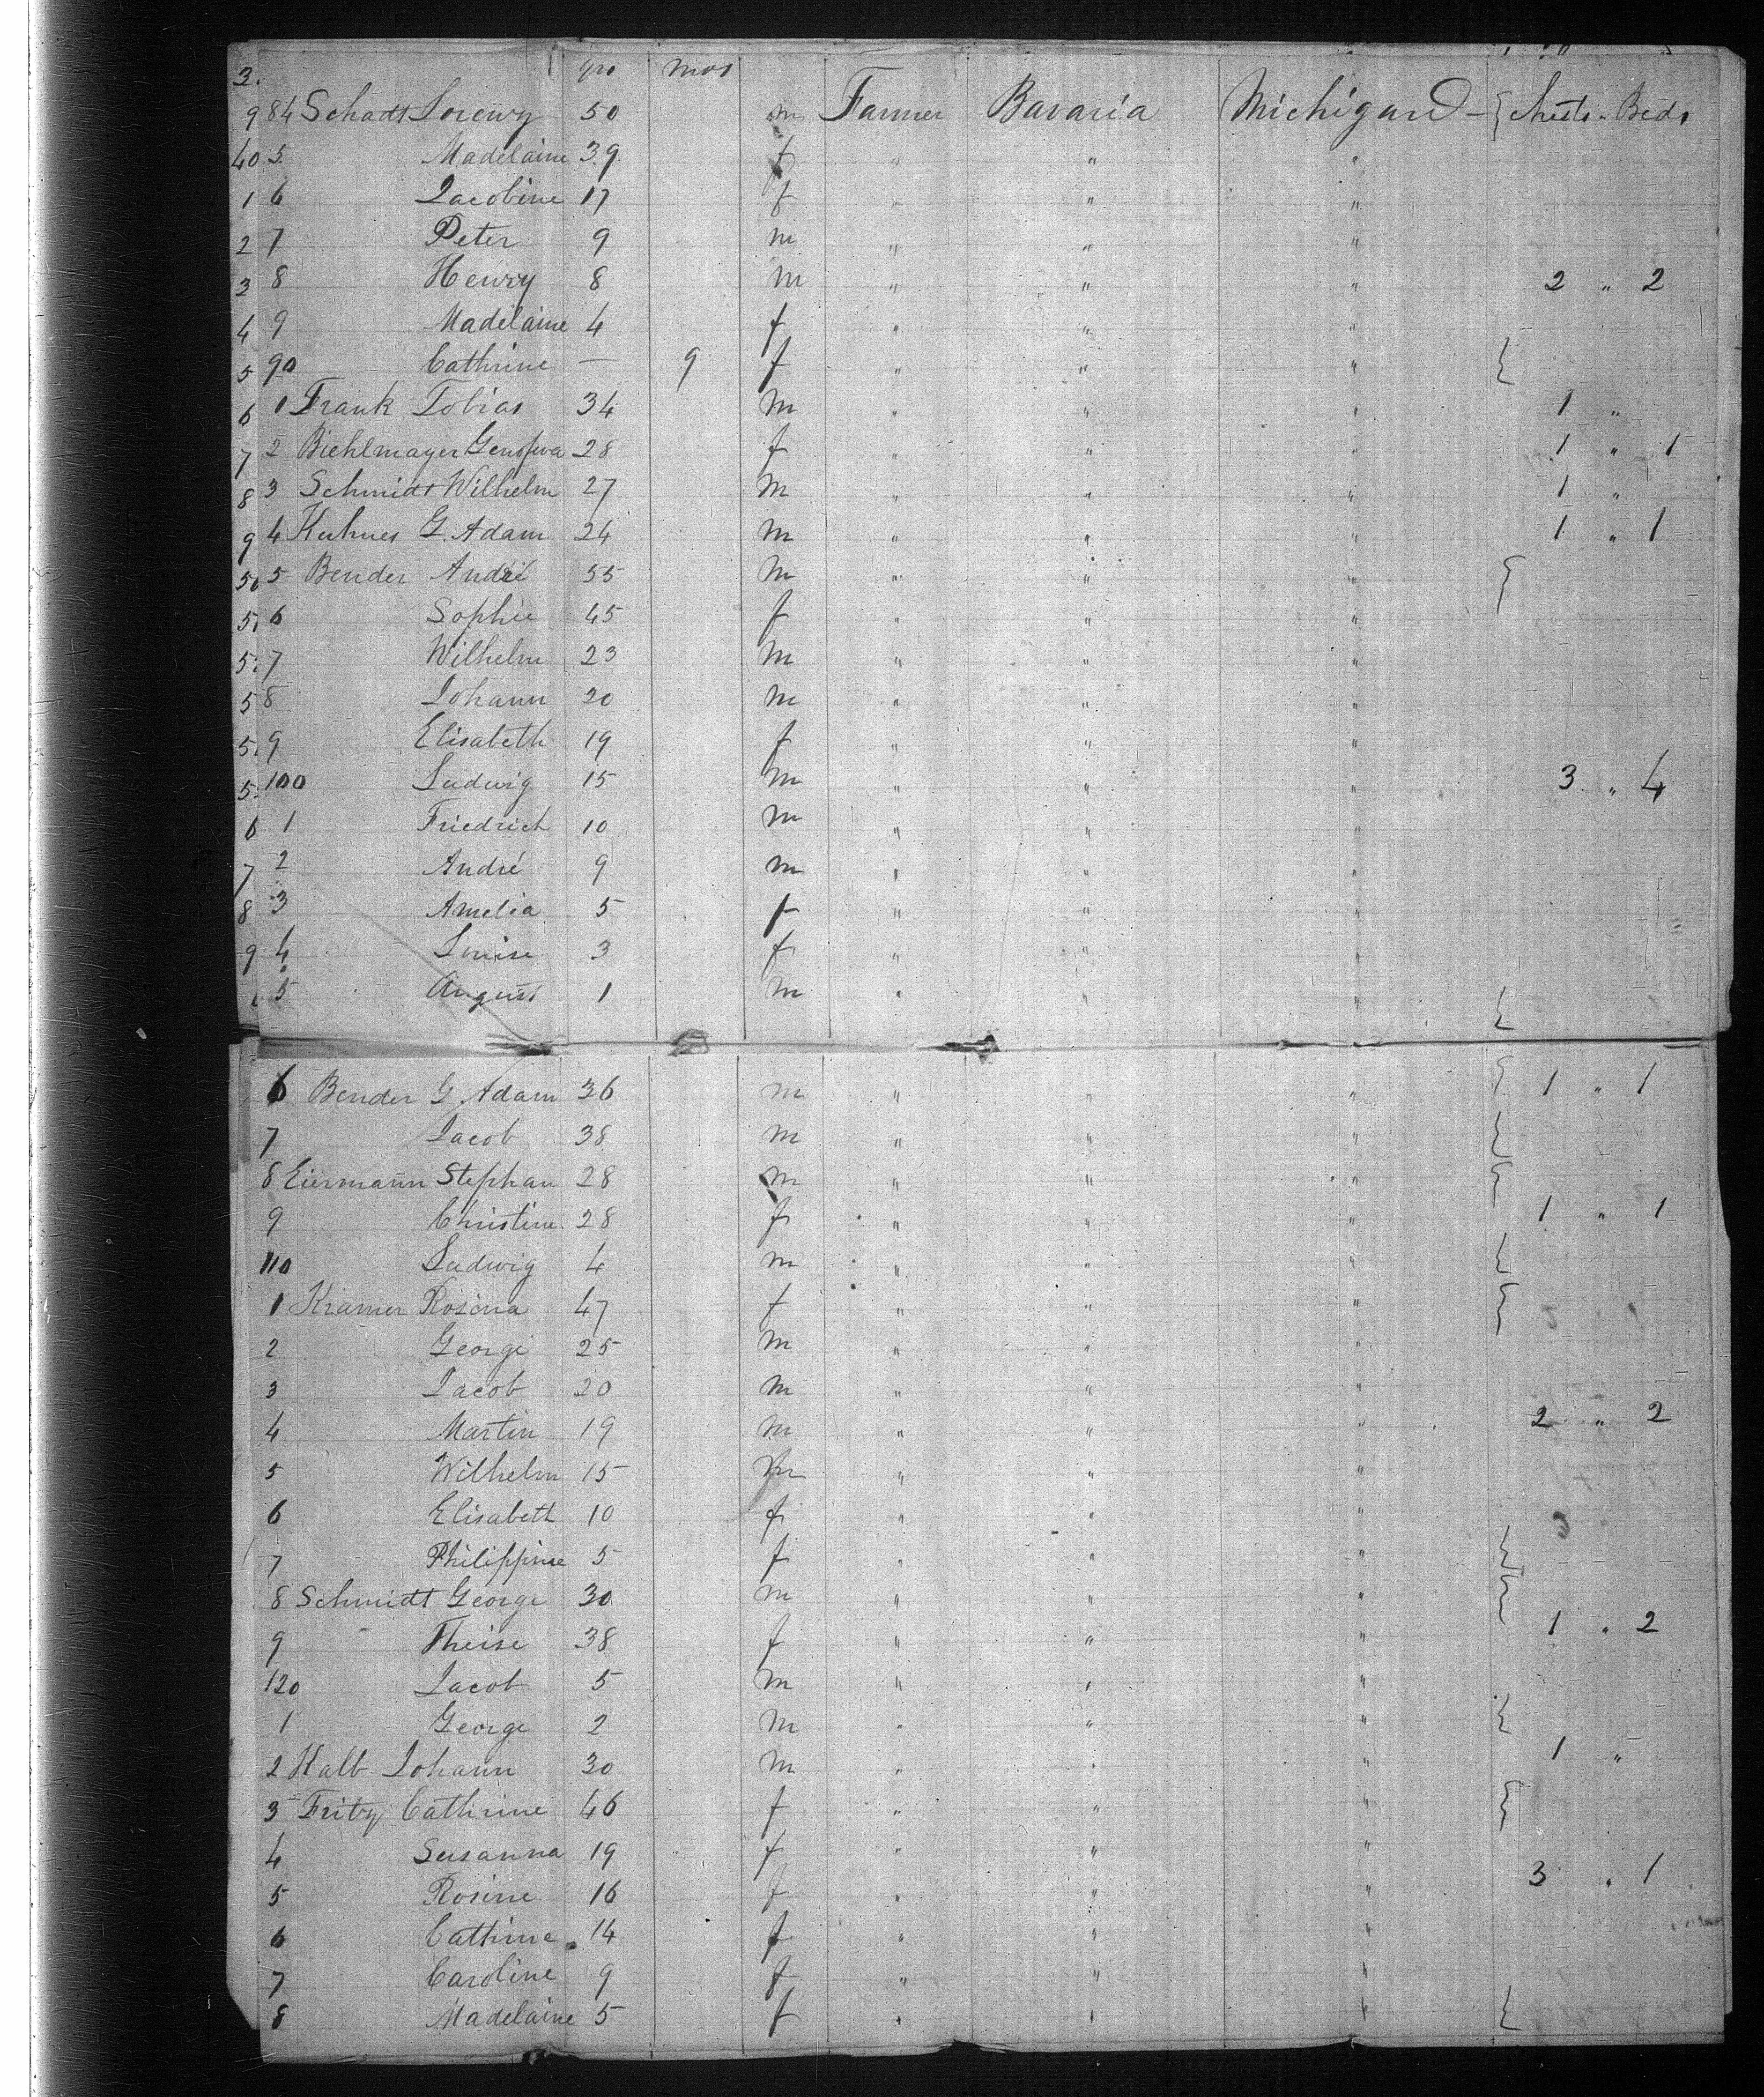 3. yrs mos
9 84 Schadt Lorenz 50 m Farmer Bavaria Michigan - { chests " Beds
40 5 Madelaine 39 f " " "
1 6 Jacobine 17 f " " "
2 7 Peter 9 m " " "
3 8 Henry 8 m " " " 2 " 2
4 9 Madelaine 4 f " " "
5 90 Cathrine — 9 f " " " {
6 1 Frank Tobias 34 m " " " 1 "
7 2 Biehlmayer Genofeva 28 f " " " 1 " 1
8 3 Schmidt Wilhelm 27 m " " " 1 "
9 4 Kuhnes G. Adam 24 m " " " 1 " 1
50 5 Bender André 55 m " " " {
51 6 Sophie 45 f " " "
5 7 Wilhelm 23 m " " "
5 8 Johann 20 m " " "
5 9 Elisabeth 19 f " " "
5 100 Ludwig 15 m " " " 3 " 4
6 1 Friedrich 10 m " " "
7 2 André 9 m " " "
8 3 Amelia 5 f " " "
9 4 Louise 3 f " " "
5 August 1 m " " " {
6 Bender G. Adam 36 m " " " { 1 " 1
7 Jacob 38 m " " " {
8 Eiermann Stephan 28 m " " " {
9 Christine 28 f " " " 1 " 1
110 Ludwig 4 m " " " {
1 Kramer Rosina 47 f " " " {
2 George 25 m " " "
3 Jacob 20 m " " "
4 Martin 19 m " " " 2 " 2
5 Wilhelm 15 m " " "
6 Elisabeth 10 f " " "
7 Philippine 5 f " " " {
8 Schmidt George 30 m " " " {
9 " Theise 38 f " " " 1 " 2
120 Jacob 5 m " " "
1 George 2 m " " " {
2 Kalb Johann 30 m " " " 1 "
3 Fritz Cathrine 46 f " " " {
4 Susanna 19 f " " "
5 Rosine 16 f " " " 3 " 1
6 Cathrine 14 f " " "
7 Caroline 9 f " " "
8 Madelaine 5 f " " " {